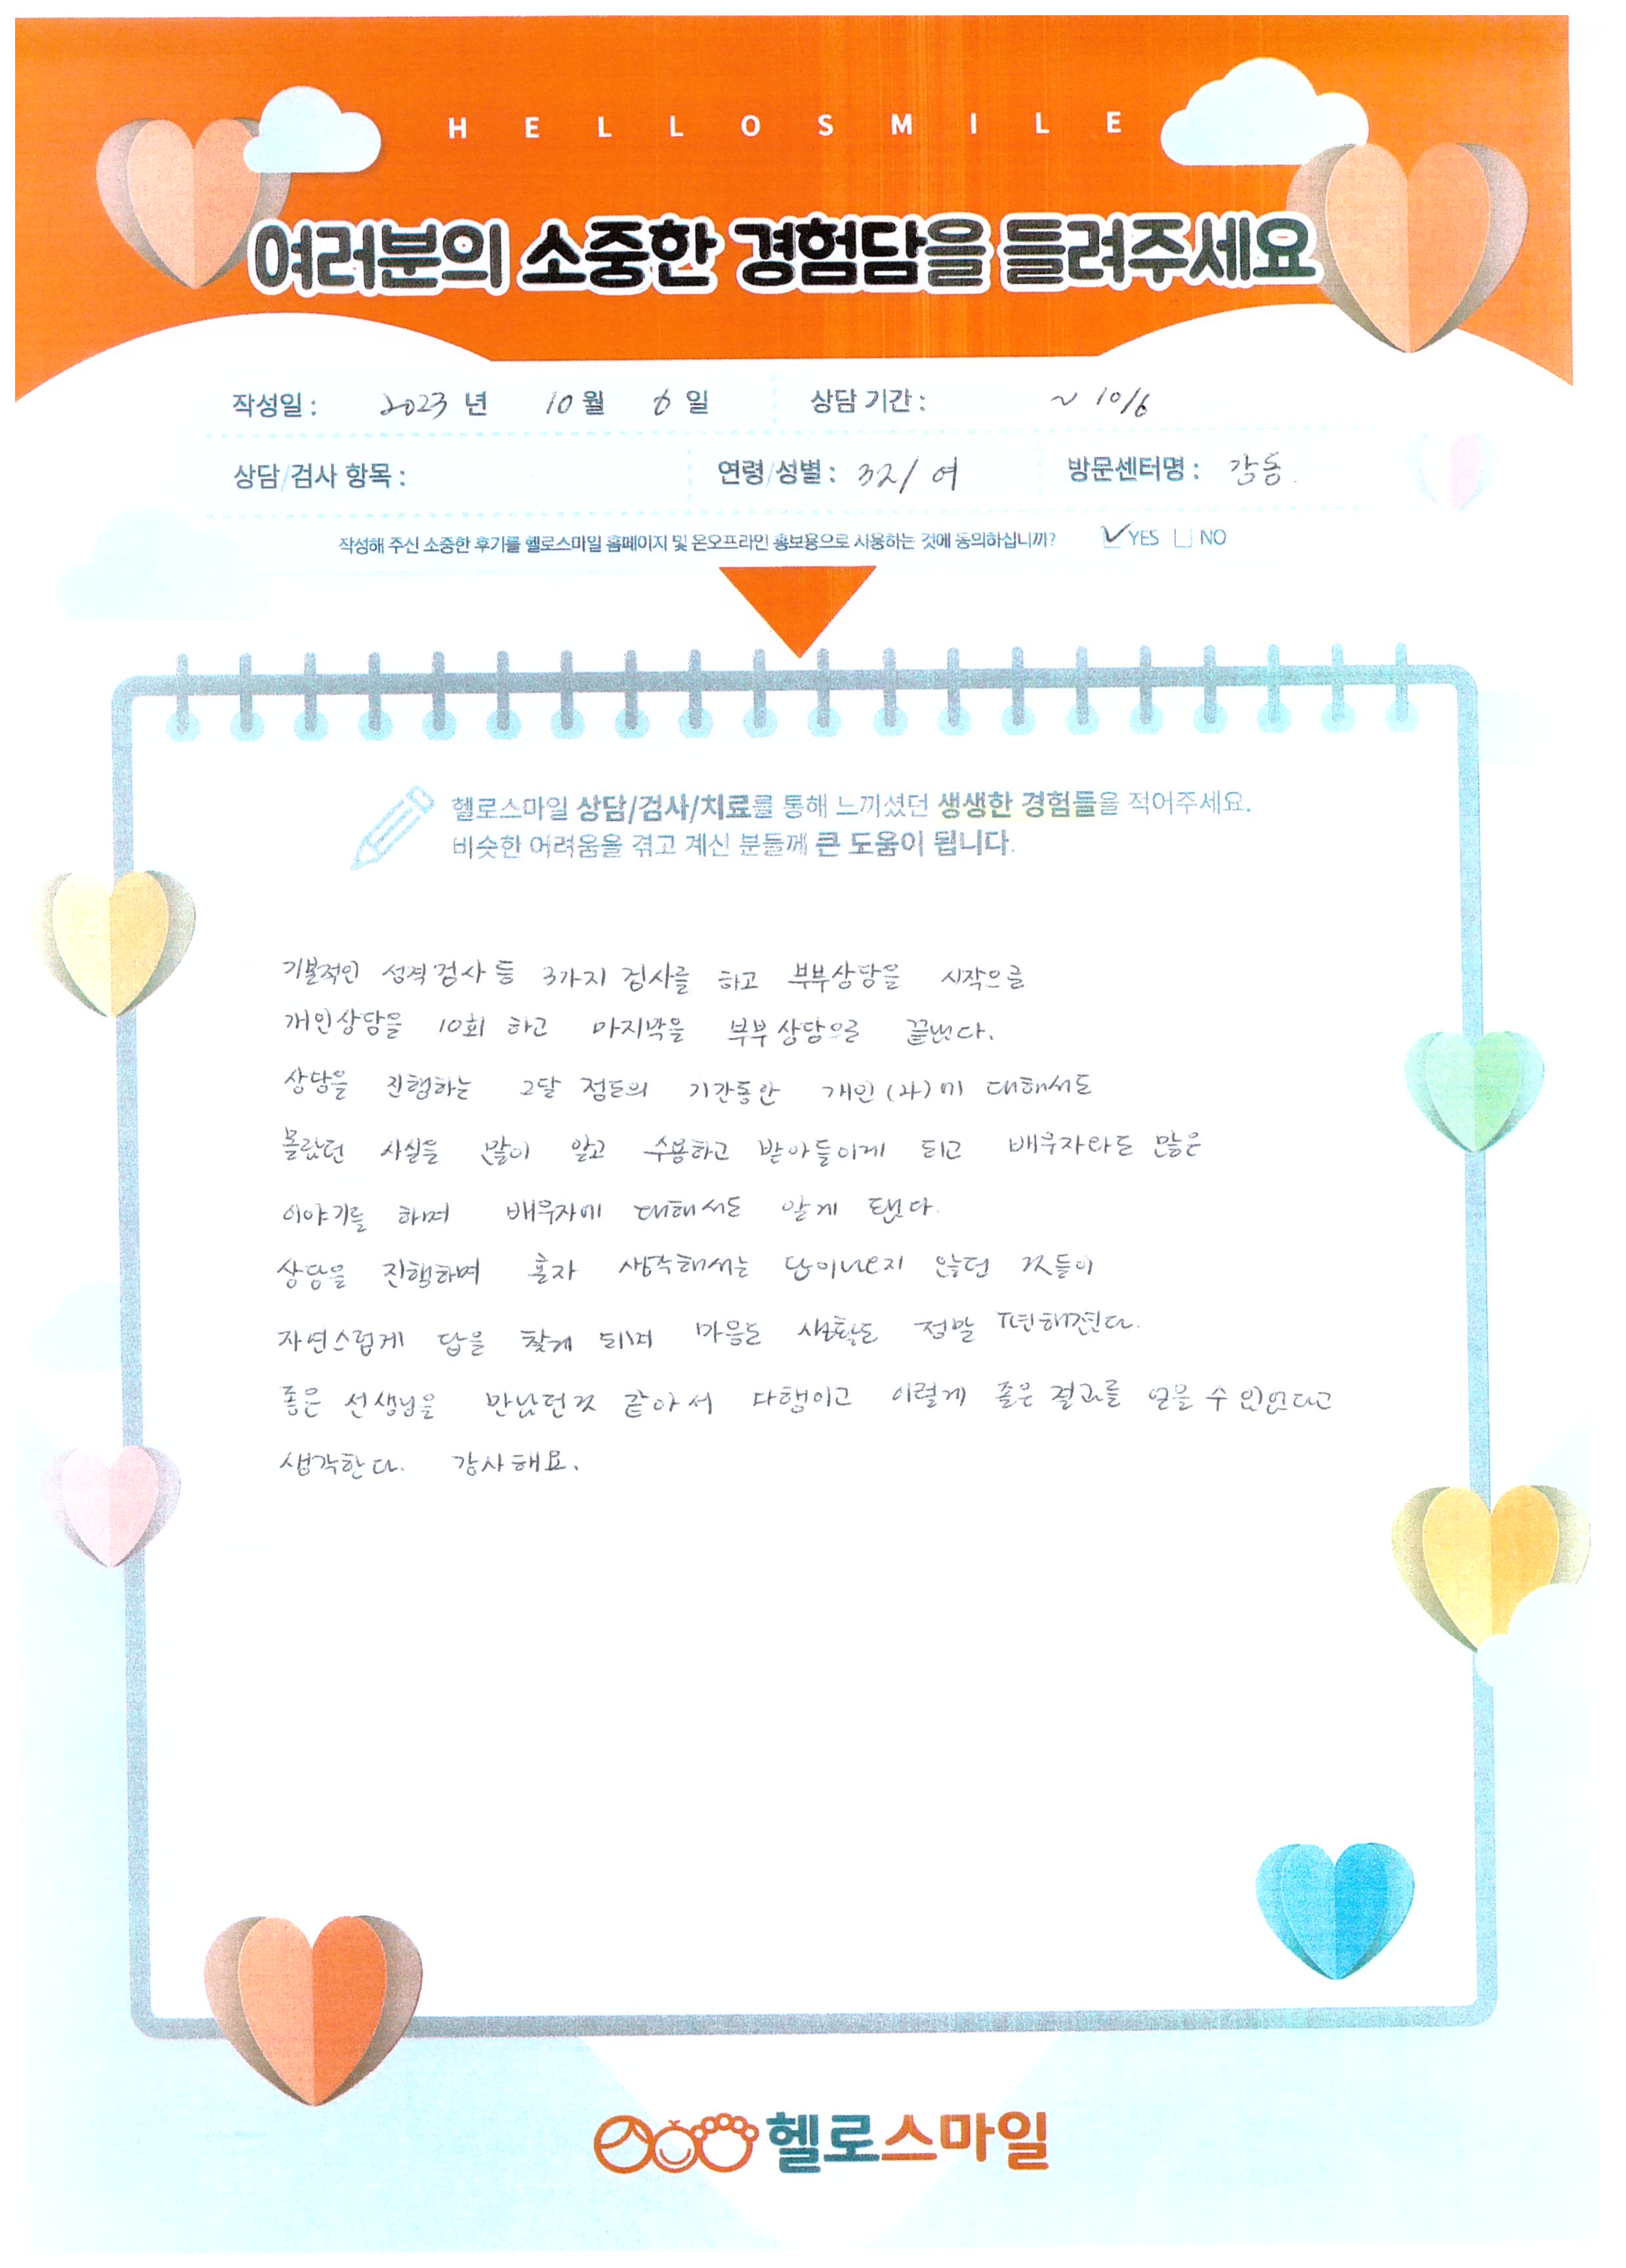 HELLOSMILE
여러분의 소중한 경험담을 들려주세요
작성일 : 2023 년 10 월 6 일 상담 기간 : ~ 10/6
상담/검사 항목 : 연령/성별 : 32/여 방문센터명 : 강동.
작성해 주신 소중한 후기를 헬로스마일 홈페이지 및 온오프라인 홍보용으로 사용하는 것에 동의하십니까? YES NO
헬로스마일 상담/검사/치료를 통해 느끼셨던 생생한 경험들을 적어주세요.
비슷한 어려움을 겪고 계신 분들께 큰 도움이 됩니다.
기본적인 성격검사 등 3가지 검사를 하고 부부상담을 시작으로
개인상담을 10회 하고 마지막을 부부상담으로 끝냈다.
상담을 진행하는 2달 정도의 기간동안 개인(나)에 대해서도
몰랐던 사실을 많이 알고 수용하고 받아들이게 되고 배우자와도 많은
이야기를 하며 배우자에 대해서도 알게 됐다.
상담을 진행하며 혼자 생각해서는 답이나오지 않던 것들이
자연스럽게 답을 찾게 되며 마음도 생활도 정말 편해졌다.
좋은 선생님을 만났던것 같아서 다행이고 이렇게 좋은 결과를 얻을 수 있었다고
생각한다. 감사해요.
헬로스마일